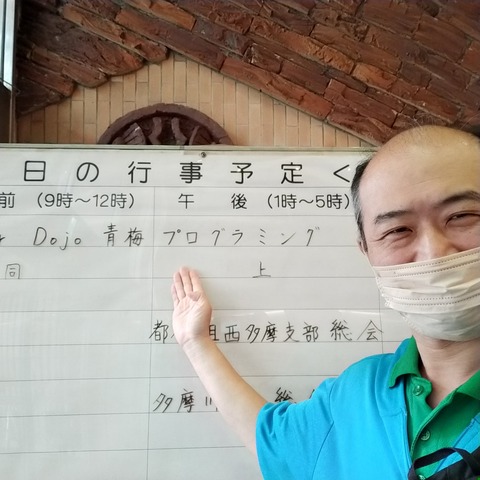 日の行事予定<
前 (9時～12時) 午後 (1時～5時)
Dojo 青梅 プログラミング
同 上
都 西多摩支部 総会
多摩川 総